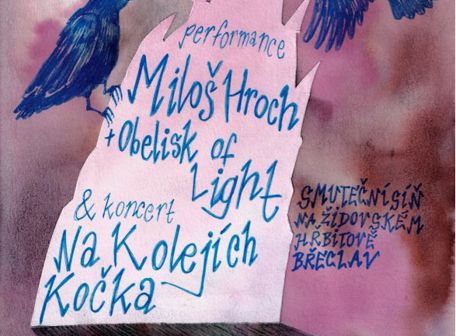 performance
Miloš Hroch
+ Obelisk of
Light
& koncert
Na Kolejích
Kočka
SMUTEČNÍ SÍŇ
NA ŽIDOVSKÉM
HŘBITOVĚ
BŘECLAV